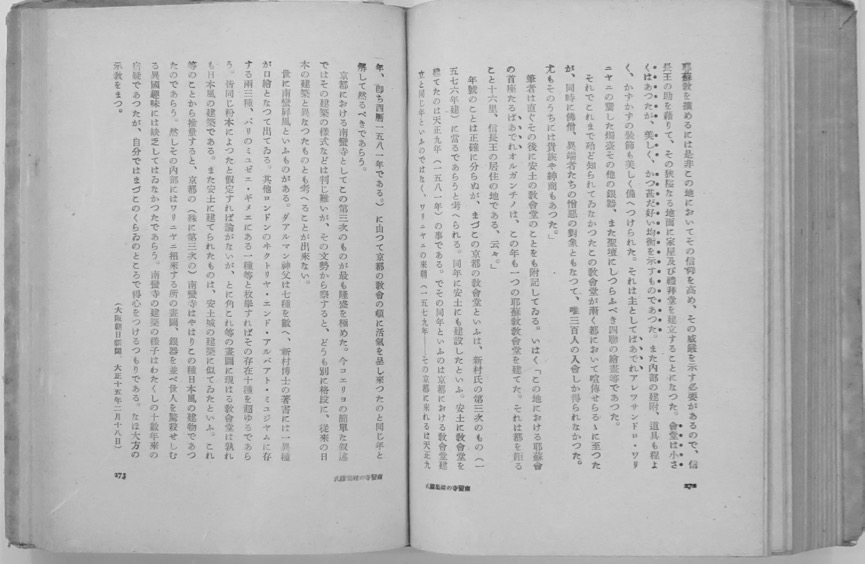 耶蘇教を擴めるには是非この地においてその信仰を高め、その威嚴を示す必要があるので、信
長王の助を藉りて、その狹隘なる地面に家屋及び禮拜堂を建立することになつた。會堂は小さ
くはあつたが、美しく、かつ甚だ好い均衡を示すものであつた。また內部の建附、道具も程よ
く、かずかずの裝飾も美しく備へつけられた。それは主としてばあでれアレワサンドロ・ワリ
ニヤニの齎した燭臺その他の銀器、また聖壇にしつらふべき四聯の繪畫等であつた。
それでこれまで殆ど知られてゐなかつたこの敎會堂が漸く都において喧傳せらるゝに至つた
が、同時に佛僧、異端者たちの憎惡の對象ともなつて、唯三百人の入會しか得られなかつた。
尤もそのうちには貴族や紳商もあつた。」
筆者は直ぐその後に安土の敎會堂のことをも附記してゐる。いはく「この地における耶蘇會
の首座たるばあでれオルガンチノは、この年も一つの耶蘇敎敎會堂を建てた。それは都を距る
こと十六里、信長王の居住の地である、云々。」
年號のことは正確に分らぬが、まづこの京都の敎會堂といふは、新村氏の第三次のもの（一
五七六年建）に當るであらうと考へられる。同年に安土にも建設したといふ。安土に敎會堂を
建てたのは天正九年（一五八一年）の事である。でその同年といふのは京都における敎會堂建
立と同じ年といふのではなく、ワリニヤニの來朝（一五七九年—その京都に來れるは天正九
272
南蠻寺の建築樣式
年、卽ち西曆一五八一年である。）に由つて京都の敎會の頓に活氣を呈し來つたのと同じ年と
解して然るべきであらう。
京都における南蠻寺としてこの第三次のものが最も隆盛を極めた。今コエリヨの簡單な敍述
ではその建築の樣式などは判じ難いが、その文勢から察すると、どうも別に格段に、從來の日
本の建築と異なつたものとも考へることが出來ない。
世に南蠻屛風といふものがある。ダアルマン神父は七種を數へ、新村博士の著書には一異種
が口繪となつて出てゐる。其他ロンドンのヰクトリヤ・エンド・アルバアト・ミュジヤムに存
する兩三種、パリのミュゼエ・ギメエにある一種等と枚擧すればその存在十種を超ゆるであら
う。皆同じ粉本によつたと假定すれば論がないが、とに角これ等の畫圖に現はる敎會堂は孰れ
も日本風の建築である。また安土に建てられたものは、安土城の建築に似てゐたといふ。これ
等のことから推量すると、京都の（殊に第三次の）南蠻寺はやはりこの種日本風の建物であつ
たのであらう。然しその內部にはワリニヤニ將來する所の畫圖、銀器を並べ世人を驚殺せしむ
る異國趣味には缺乏してはゐなかつたであらう。南蠻寺の建築の樣子はわたくしの十數年來の
宿疑であつたが、自分ではまづこのくらゐのところで得心をつけるつもりである。なほ大方の
示敎をまつ。
（大阪朝日新聞、大正十五年二月十八日）
南蠻寺の建築樣式
273